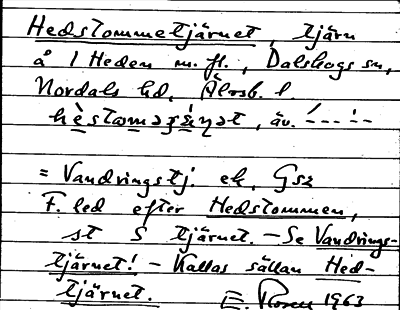 Hedstommetjärnet, tjärn
å 1 Heden m. fl., Dalskogs sn,
Nordals hd, Älvsb. l.
, äv.
= Vandringstj. ek. Gsz
F. led efter Hedstommen,
st S tjärnet. – Se Vandrings-
tjärnet! – Kallas sällan Hed-
tjärnet. E. Rosen 1963